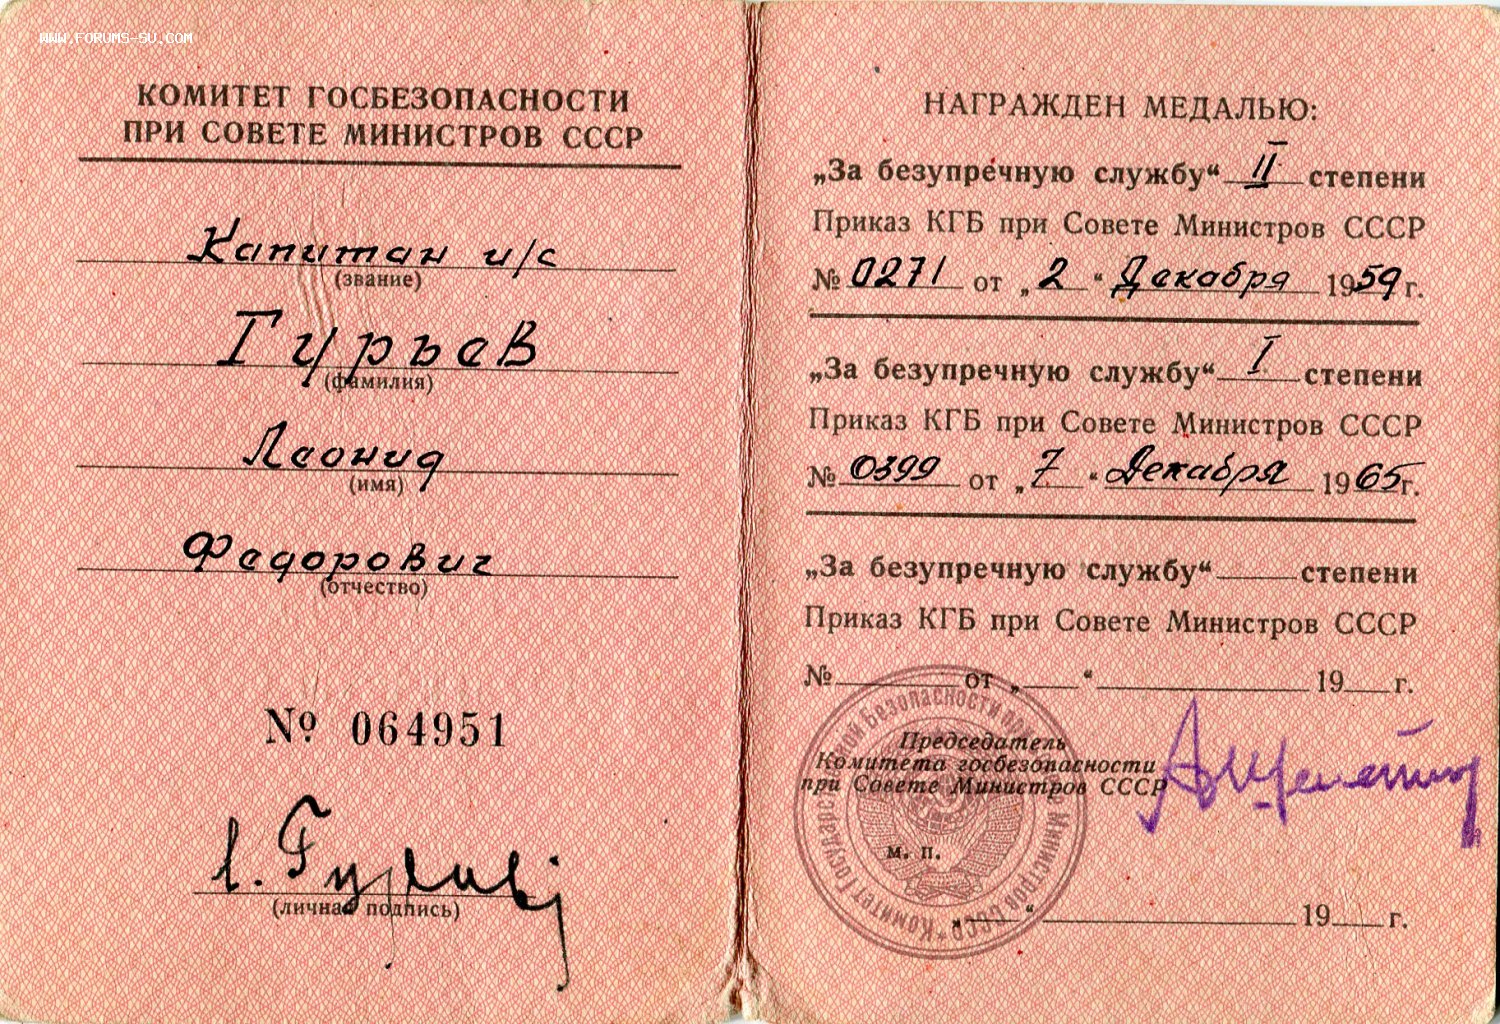 WWW.FORUMS-SU.COM
КОМИТЕТ ГОСБЕЗОПАСНОСТИ
ПРИ СОВЕТЕ МИНИСТРОВ СССР
Капитан и/с
(звание)
Гурьев
(фамилия)
Леонид
(имя)
Федорович
(отчество)
№ 064951
(личная подпись)
НАГРАЖДЕН МЕДАЛЬЮ:
„За безупречную службу“ II степени
Приказ КГБ при Совете Министров СССР
№ 0271 от „2“ Декабря 1959 г.
„За безупречную службу“ I степени
Приказ КГБ при Совете Министров СССР
№ 0399 от „7“ Декабря 1965 г.
„За безупречную службу“ степени
Приказ КГБ при Совете Министров СССР
№ от „ “ 19 г.
Председатель
Комитета госбезопасности
при Совете Министров СССР
м. п.
Комитет Государственной Безопасности при Совете Министров СССР
„ “ 19 г.